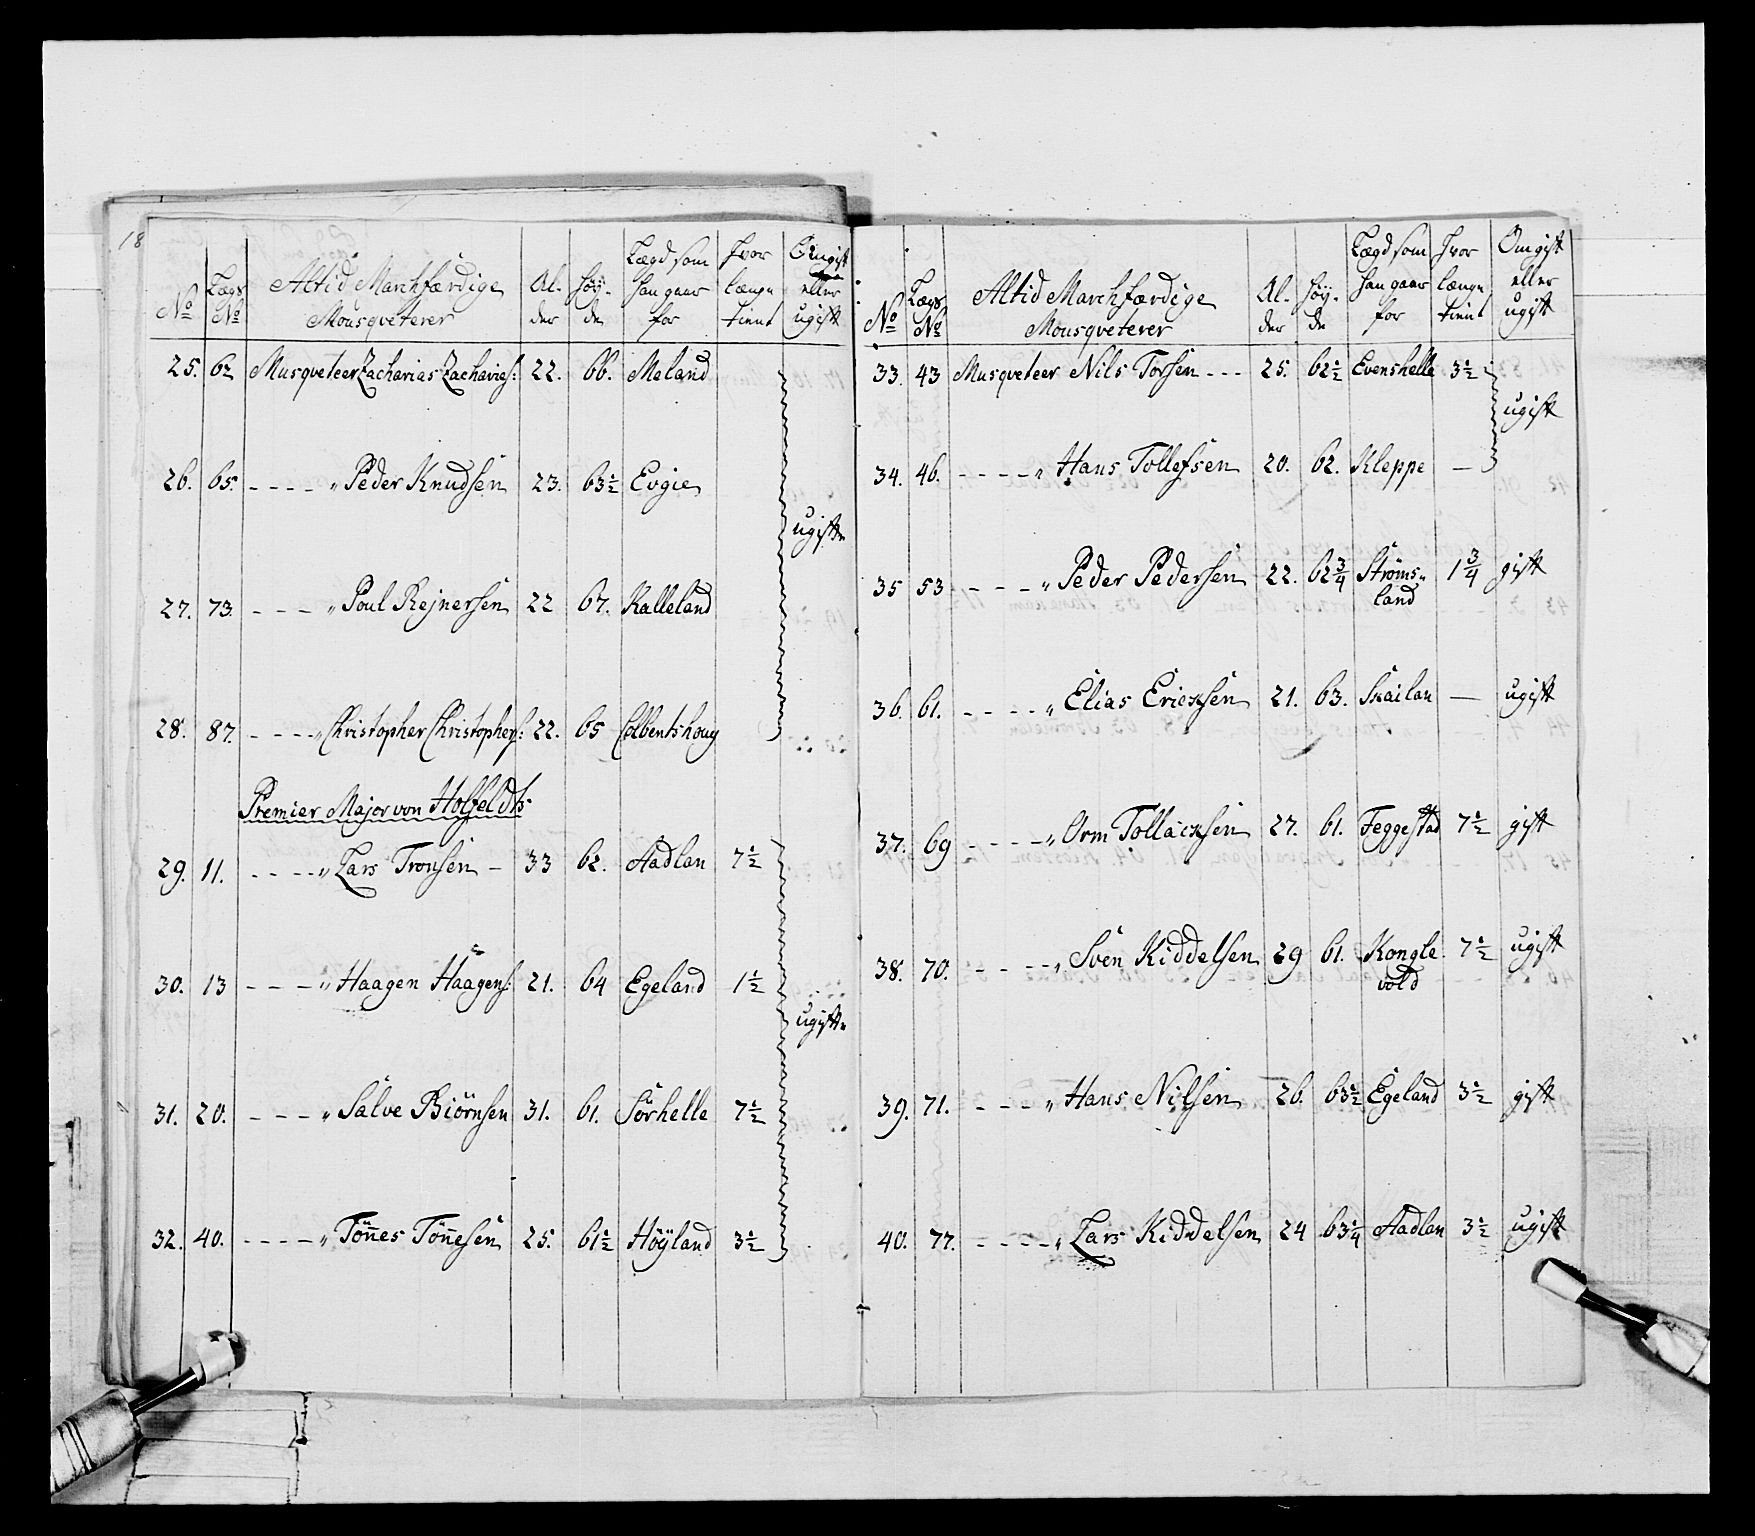 18
No | Lægs No | Altid Marchfærdige Mousqveterer | Al- der | Høy- de | Lægd som han gaar for | Hvor længe tient | Om gift eller ugift
25. 62 Musqveteer Zacharias Zacharies: 22. 66. Meland
26. 65. - - - - " Peder Knudsen 23. 63½ Evgie
ugifte
27. 73. - - - " Poul Rejnersen 22 67. Kalleland
28. 87. - - - - " Christopher Christophers: 22. 65 Colbentshoug
Premier Major von Holfeldts
29. 11. - - - - " Lars Tronsen - 33 62. Aadlan 7½
30. 13 - - - " Haagen Haagens: 21. 64 Egeland 1½
ugifte
31. 20. - - - " Salve Biörnsen 31. 61. Sörhelle 7½
32. 40. - - - - " Tönnes Tönnesen 25. 61½ Höyland 3½
No | Lægs No | Altid Marchfærdige Mousqveterer | Al- der | Høy- de | Lægd som han gaar for | Hvor længe tient | Om gift eller ugift
33. 43 Musqveteer Nils Torsen - - - 25. 62½ Evenshelle 3½
ugift
34. 46. - - - - " Hans Tollefsen 20. 62. Kleppe —
35 53 - - - - " Peder Pedersen 22. 62¾ Ströms- 1¾ gift
land
36. 61. - - - - " Elias Ericksen 21. 63. Skailan — ugift
37. 69 - - - - " Orm Tollacksen 27. 61. Feggestad 7½ gift
38. 70. - - - - " Sven Kiddelsen 29 61. Kongle 7½ ugift
vold
39. 71. - - - " Hans Nilsen 26. 63½ Egeland 3½ gift
40. 77. - - - - " Lars Kiddelsen 24 63¼ Aadlan 3½ ugift